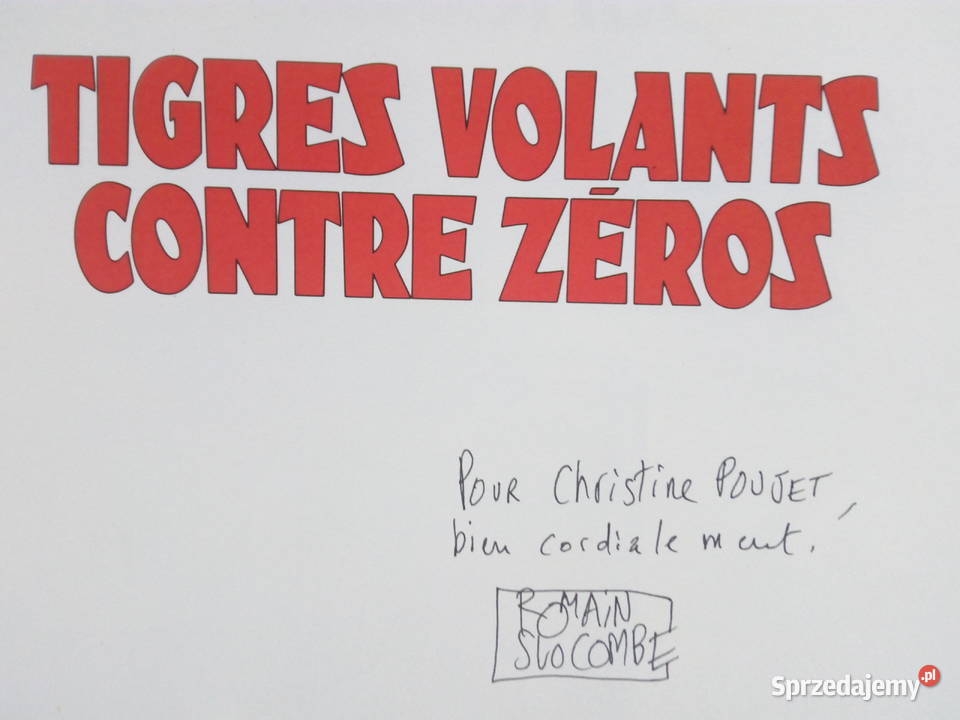 TIGRES VOLANTS
CONTRE ZÉROS
Pour Christine POUJET,
bien cordialement.
ROMAIN
SLOCOMBE
Sprzedajemy.pl